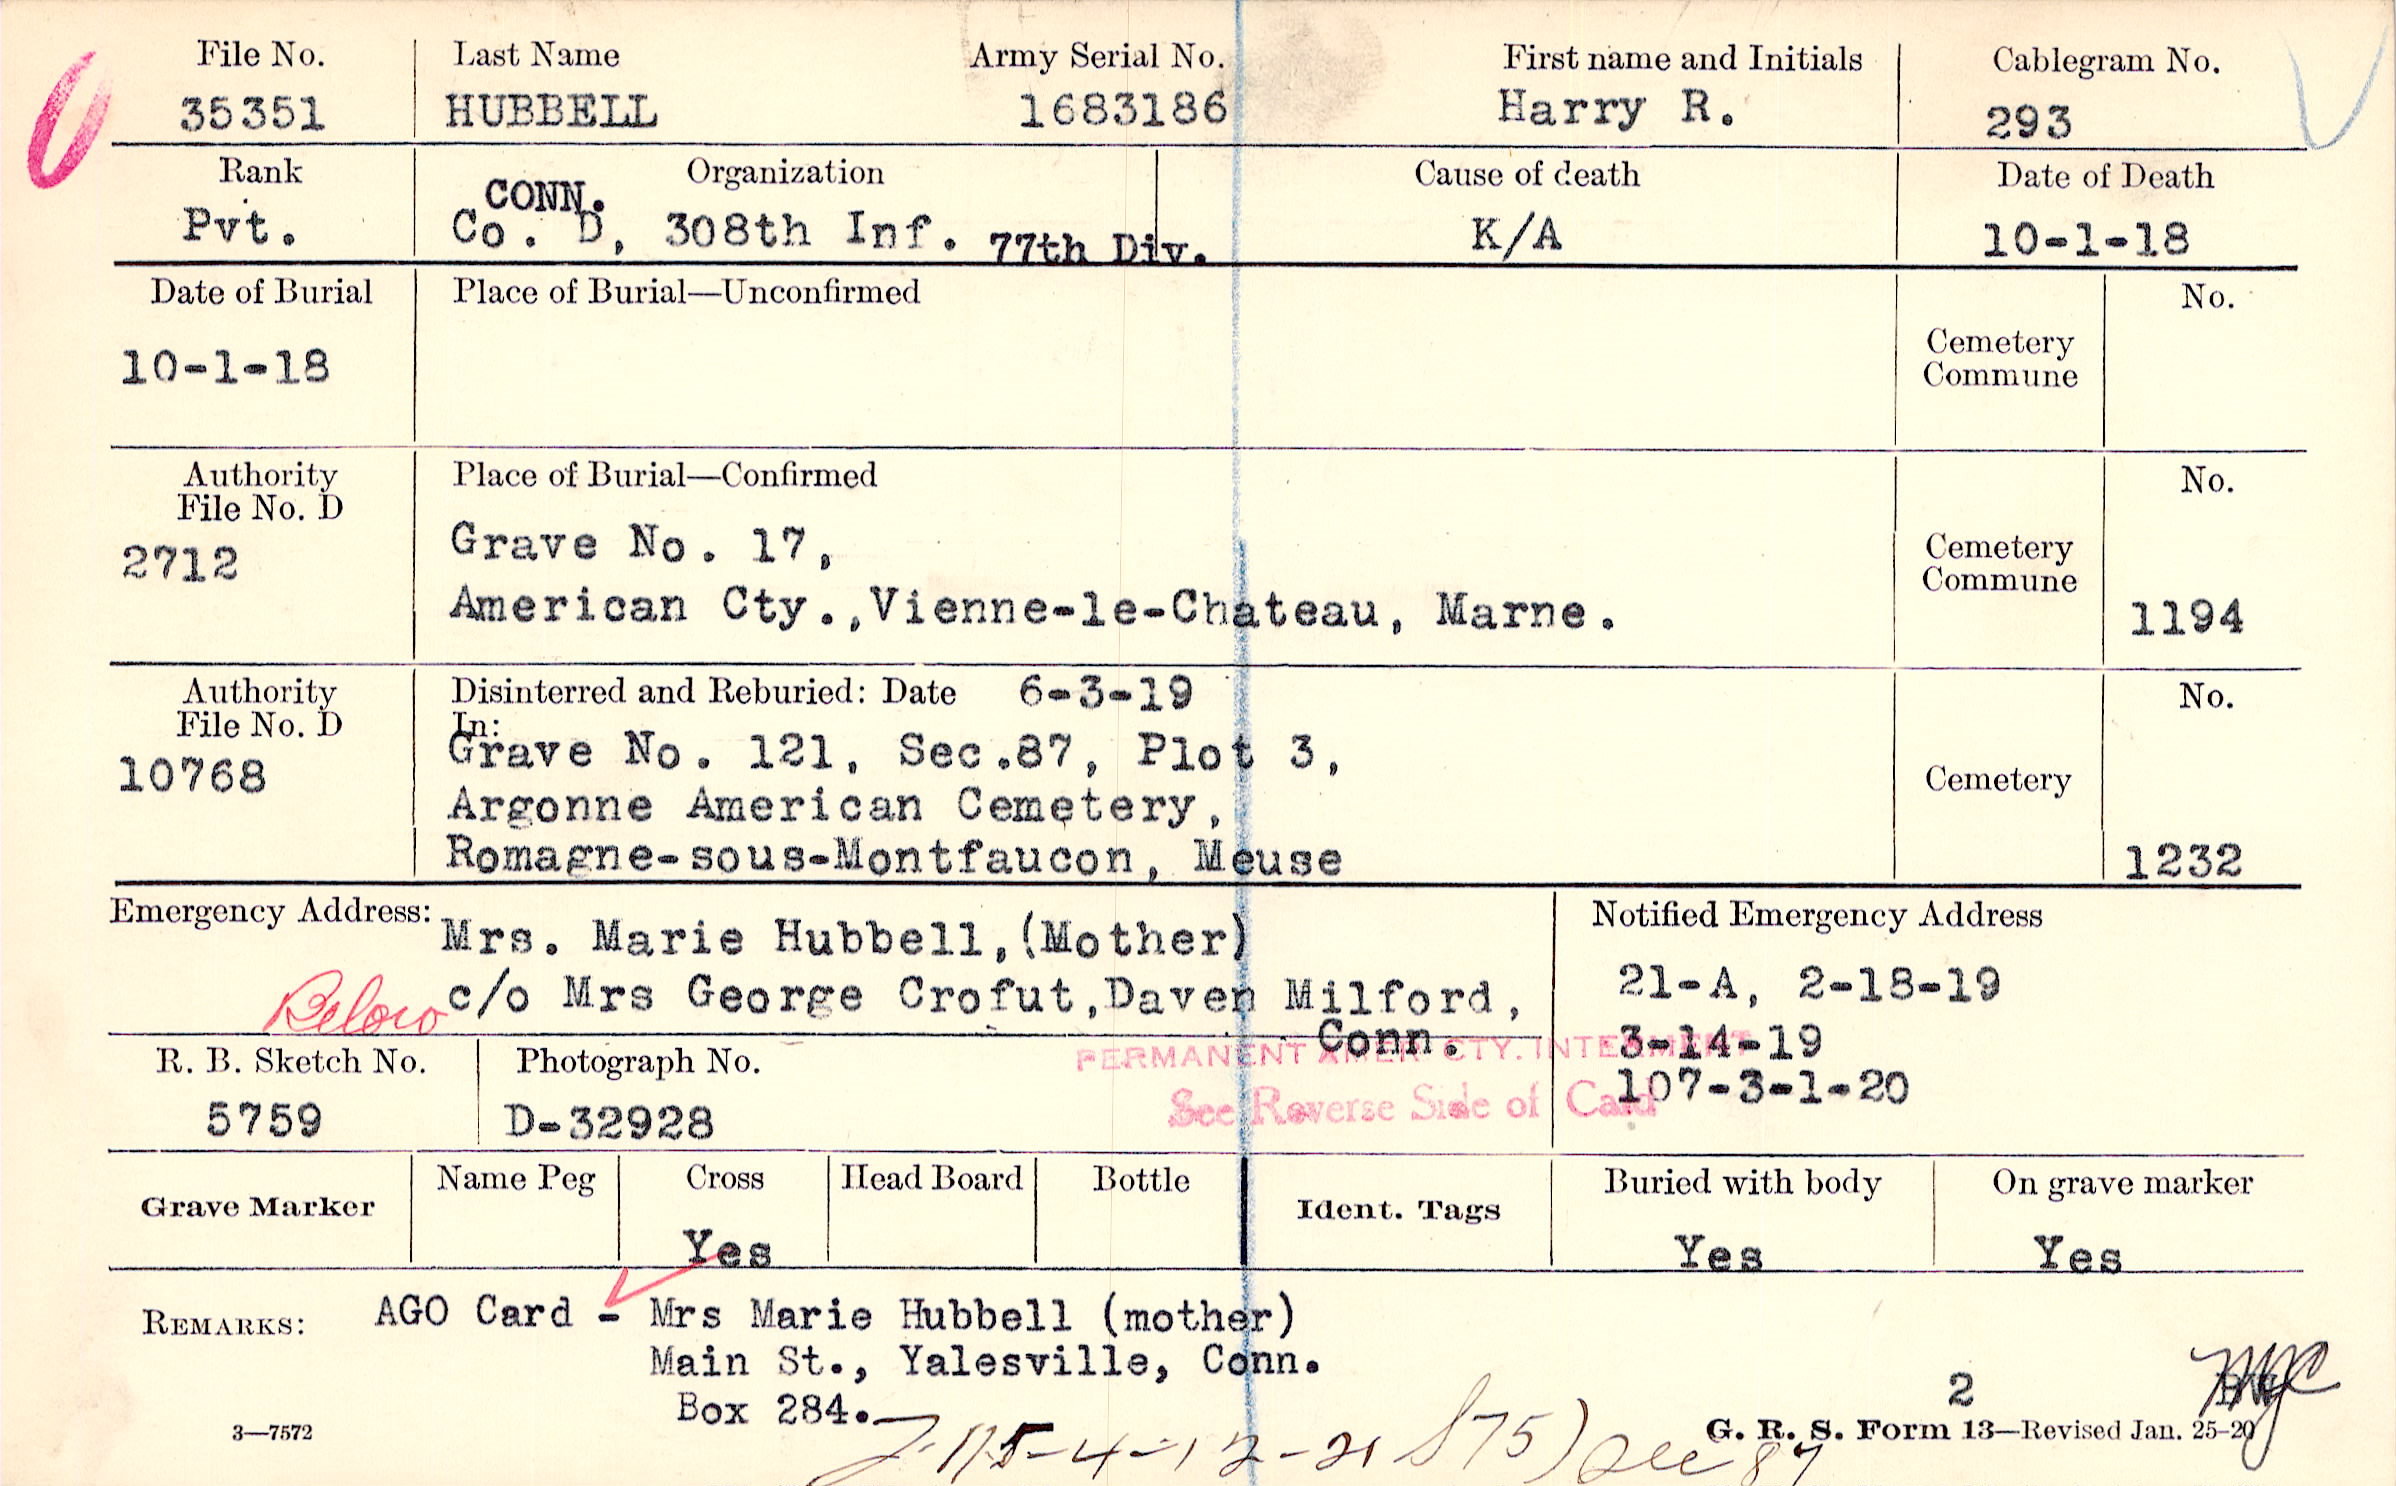 File No. Last Name Army Serial No. First name and Initials Cablegram No.
35351 HUBBELL 1683186 Harry R. 293
Rank Organization Cause of death Date of Death
CONN.
Pvt. Co. D, 308th Inf. 77th Div. K/A 10-1-18
Date of Burial Place of Burial—Unconfirmed No.
10-1-18 Cemetery
Commune
Authority Place of Burial—Confirmed No.
File No. D
2712 Grave No. 17, Cemetery
Commune
American Cty.,Vienne-le-Chateau, Marne. 1194
Authority Disinterred and Reburied: Date 6-3-19 No.
File No. D In:
10768 Grave No. 121, Sec.87, Plot 3, Cemetery
Argonne American Cemetery,
Romagne-sous-Montfaucon, Meuse 1232
Emergency Address: Mrs. Marie Hubbell,(Mother) Notified Emergency Address
Below c/o Mrs George Crofut,Daven Milford, 21-A, 2-18-19
Conn. 3-14-19
PERMANENT AMER. CTY. INTERMENT
R. B. Sketch No. Photograph No. 107-3-1-20
See Reverse Side of Card
5759 D-32928
Grave Marker Name Peg Cross Head Board Bottle Ident. Tags Buried with body On grave marker
Yes Yes Yes
REMARKS: AGO Card - Mrs Marie Hubbell (mother)
Main St., Yalesville, Conn.
Box 284. 2
3—7572 G. R. S. Form 13—Revised Jan. 25-20